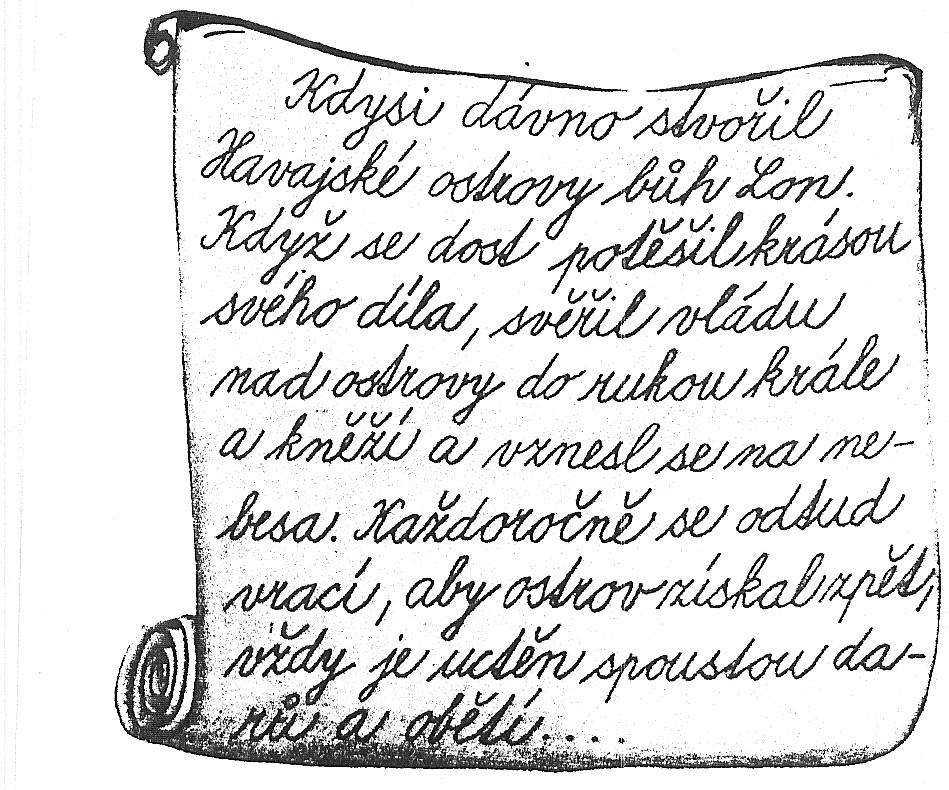 Kdysi dávno stvořil
Havajské ostrovy bůh Lon.
Když se dost potěšil krásou
svého díla, svěřil vládu
nad ostrovy do rukou krále
a kněží a vznesl se na ne-
besa. Každoročně se odtud
vrací, aby ostrov získal zpět,
vždy je uctěn spoustou da-
rů a obětí....